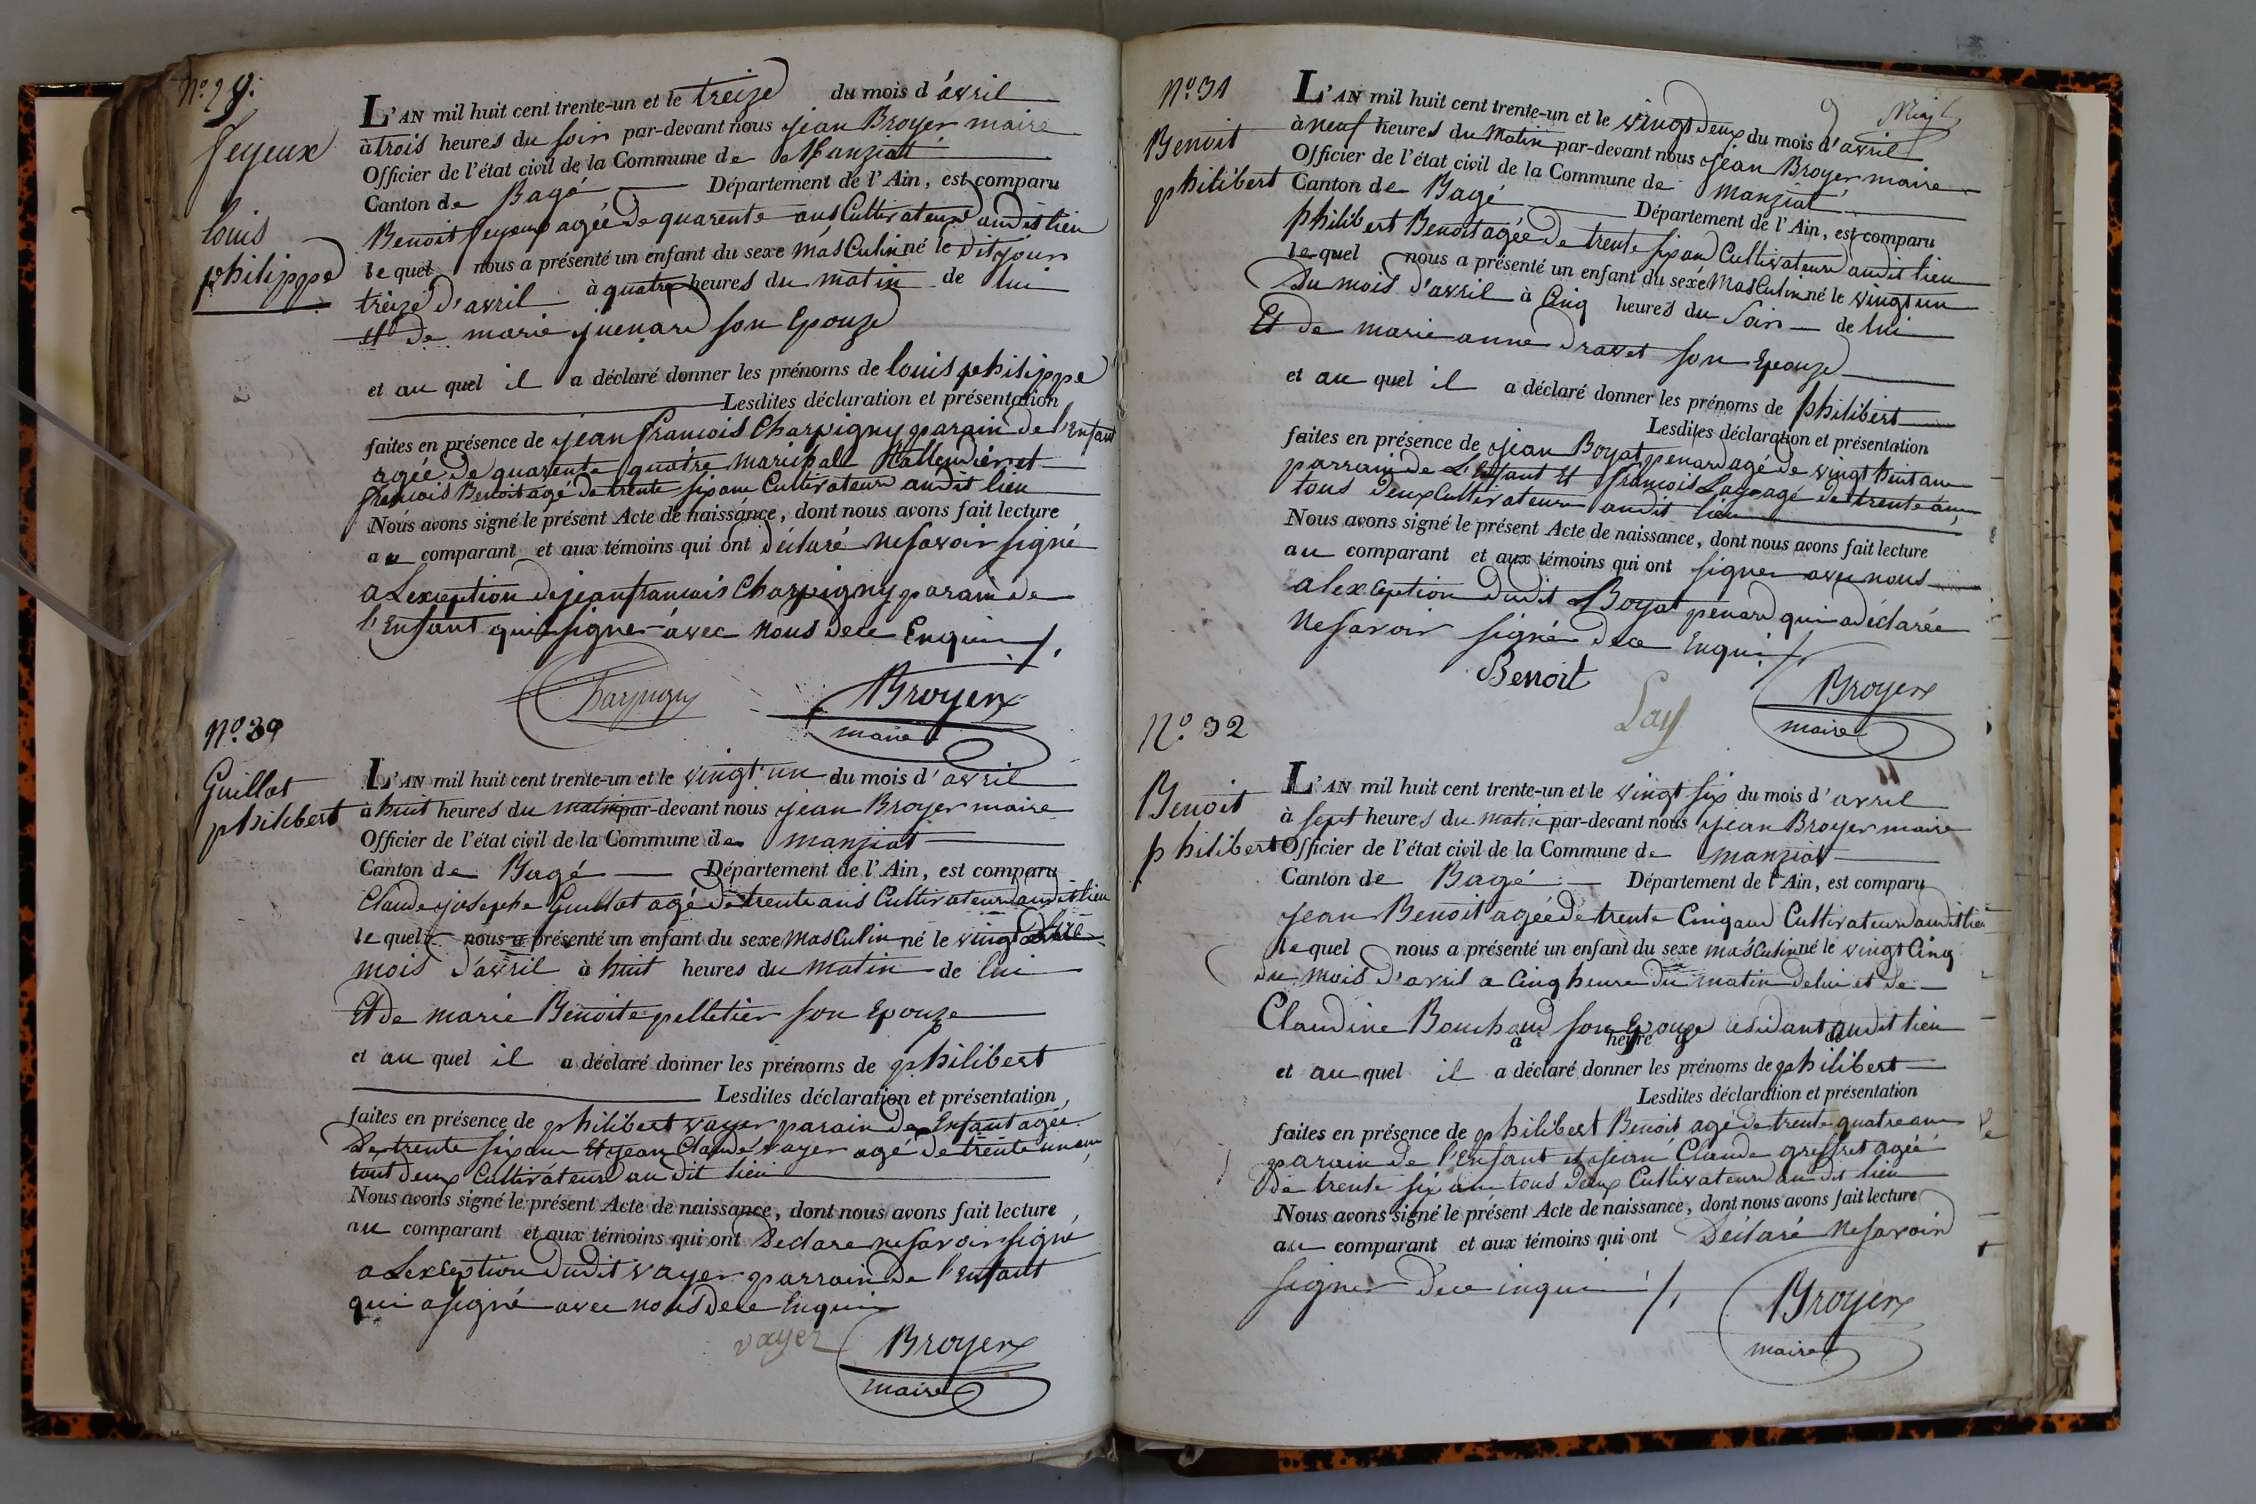 N.º 29.
feyeux
louis
philippe
L'AN mil huit cent trente-un et le treize du mois d'avril
à trois heures du soir par-devant nous jean Broyer maire
Officier de l'état civil de la Commune de Manziat
Canton de Bagé Département de l'Ain, est comparu
Benoit feyeux agée de quarente ans Cultivateur audit lieu
le quel nous a présenté un enfant du sexe masCulin né le dit jour
treize d'avril à quatre heures du matin de lui
Et de marie juenard son Epouze
et au quel il a déclaré donner les prénoms de louis philippe
Lesdites déclaration et présentation
faites en présence de jean francois Charpigny parain de l'Enfant
agée de quarente quatre et
francois Benoit agé de trente six ans Cultivateur audit lieu
Nous avons signé le présent Acte de naissance, dont nous avons fait lecture
au comparant et aux témoins qui ont déclaré ne savoir signé
a Lexception de jean francois Charpigny parain de
l'Enfant qui signer avec nous dece Enquis /.
Charpigny Broyer
maire
N.º 30
Guillot
philibert
L'AN mil huit cent trente-un et le vingt-un du mois d'avril
à huit heures du matin par-devant nous jean Broyer maire
Officier de l'état civil de la Commune de manziat
Canton de Bagé Département de l'Ain, est comparu
Claude josephe Guillot agé de trente ans Cultivateur audit lieu
le quel nous a présenté un enfant du sexe masCulin né le vingt
mois d'avril à huit heures du matin de lui
Et de marie Benoite pelletier son Epouze
et au quel il a déclaré donner les prénoms de philibert
Lesdites déclaration et présentation
faites en présence de philibert vayer parain de Enfant agée
de trente six ans Et jean Claude vayer agé de trente un ans
tout deux Cultivateur au dit lieu
Nous avons signé le présent Acte de naissance, dont nous avons fait lecture
au comparant et aux témoins qui ont Declare ne savoir signé
a Lexception dudit vayer parrain de l'Enfant
qui a signé avec nous dece Enquis
vayer Broyer
maire
N.º 31
Benoit
philibert
L'AN mil huit cent trente-un et le vingt deux du mois d'avril
à neuf heures du Matin par-devant nous jean Broyer maire
Officier de l'état civil de la Commune de manziat
Canton de Bagé Département de l'Ain, est comparu
philibert Benoit agée de trente six ans Cultivateur audit lieu
le quel nous a présenté un enfant du sexe MasCulin né le vingt un
Du mois d'avril à Cinq heures du Soir de lui
Et de marie anne dravet son Epouze
et au quel il a déclaré donner les prénoms de philibert
Lesdites déclaration et présentation
faites en présence de jean Boyat penard agé de vingt huit ans
parrain de L'Enfant Et francois Lay agé de trente ans,
tous deux Cultivateur audit lieu
Nous avons signé le présent Acte de naissance, dont nous avons fait lecture
au comparant et aux témoins qui ont signer avec nous
a lexception dudit Boyat penard qui a déclarée
Ne savoir signé dece Enquis /.
Benoit Lay Broyer
maire
N.º 32
Benoit
philibert
L'AN mil huit cent trente-un et le vingt six du mois d'avril
à sept heures du matin par-devant nous jean Broyer maire
Officier de l'état civil de la Commune de manziat
Canton de Bagé Département de l'Ain, est comparu
jean Benoit agée de trente Cinq ans Cultivateur audit lieu
le quel nous a présenté un enfant du sexe masCulin né le vingt Cinq
du mois d'avril a Cinq heure du matin de lui et de
Claudine Bouchoud son Epouze residant audit lieu
à heure de
et au quel il a déclaré donner les prénoms de philibert
Lesdites déclaration et présentation
faites en présence de philibert Benoit agé de trente quatre ans
parain de l'Enfant et jean Claude greffet agée
de trente six ans tous deux Cultivateur audit lieu
Nous avons signé le présent Acte de naissance, dont nous avons fait lecture
au comparant et aux témoins qui ont Déclaré Ne savoir
signer dece inquis /.
Broyer
maire